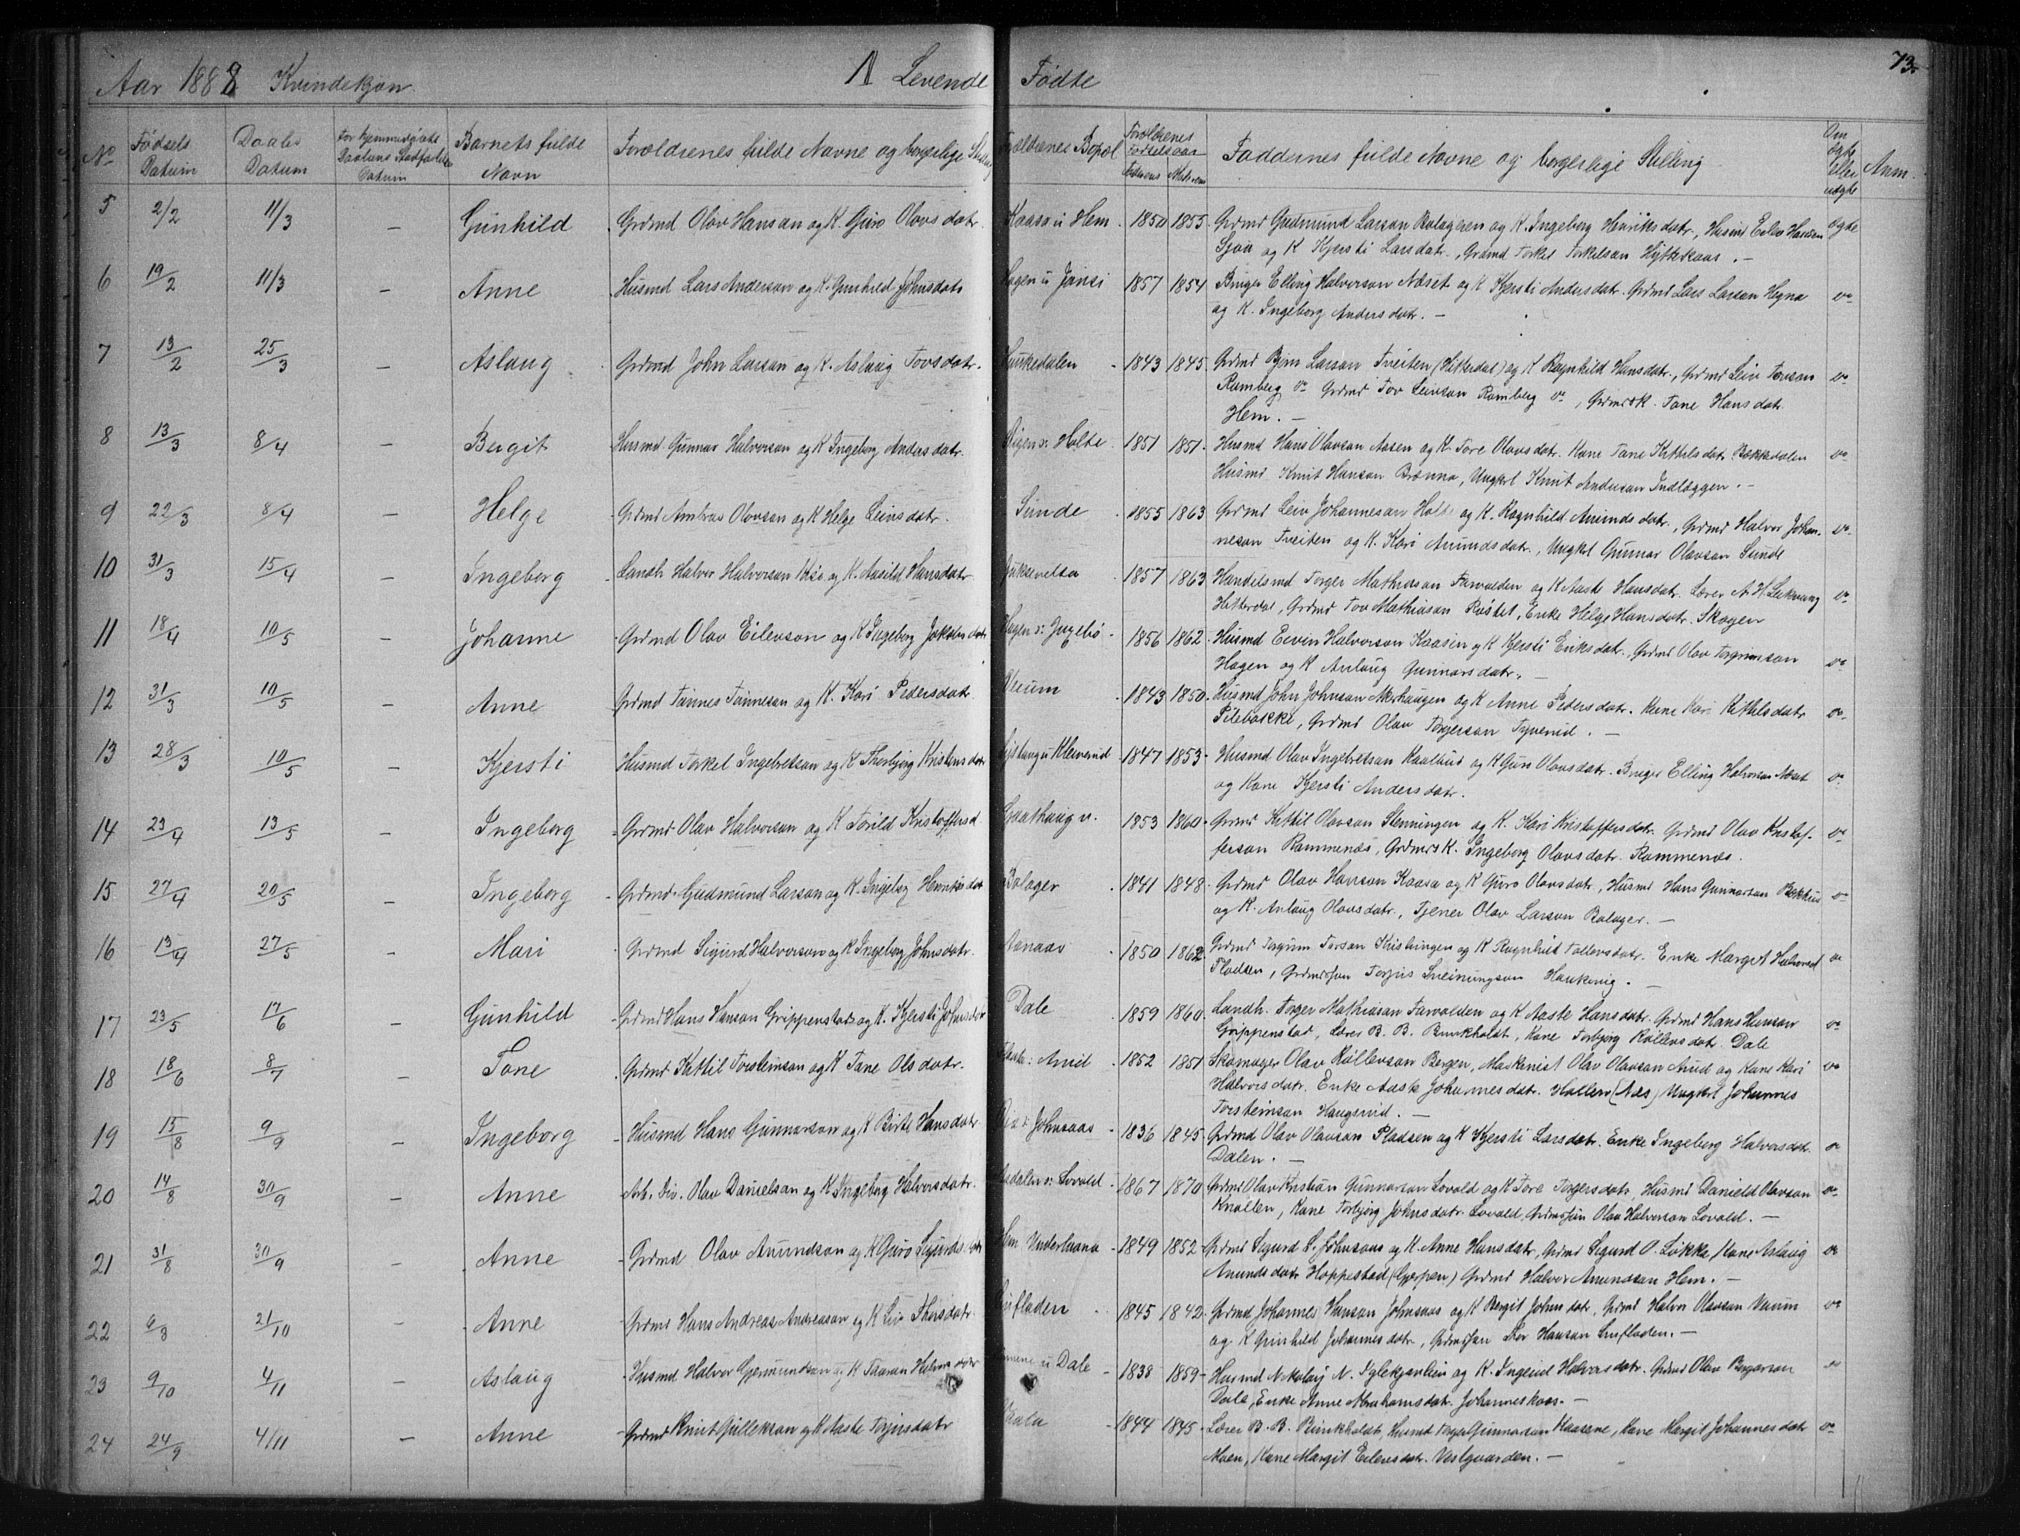 Aar 1888 Kvindekjøn. 1 Levende Fødte 73.
No Fødsels Datum Daabs Datum for hjemmedøbte Daabens Stadfæstelse Datum Barnets fulde Navn Forældrenes fulde Navne og borgerlige Stilling Forældrenes Bopæl Forældrenes Fødselsaar Faderens Moderens Faddernes fulde Navne og borgerlige Stilling Om ægte eller uægte Anm.
5 2/2 11/3 - Gunhild Grdmd Olav Hansan og K. Guro Olavsdatr. Kaasa u Hem. 1850 1855 Grdmd Gudmund Larsan Bolageren og K. Ingeborg Henriksdatr., Husmd Eilev Hansen ægte
og K Kjersti Larsdatr., Grdmd Torkel Torkelsan Hytterkaas. -
6 19/2 11/3 - Anne Husmd Lars Andersen og K. Gunhild Johnsdatr Hagen u Jønsi 1857 1854 Bruger Elling Halverson Næset og K Kjersti Andersdatr. Grdmd Lars Larsan Hegna do
og K. Ingeborg Andersdatr. -
7 13/2 25/3 - Aslaug Grdmd John Larsan og K. Aslaug Tovsdatr. 1843 1845 Grdmd Bjørn Larsan Tveiten (Hitterdal) og K Ragnhild Hansdatr., Grdmd Leiv Tovsan do
Ramberg do Grdmd Tov Leivsan Ramberg do, Grdmdsk. Tone Hansdatr.
Hem. -
8 13/3 8/4 - Bergit Husmd Gunnar Halverson og K Ingeborg Andersdatr. u: Holte 1851 1851 Husmd Hans Olavsan Aasen og K. Tore Olavsdatr. Kone Tane Kittilsdatr Bækkedalen do
Husmd Knut Hansan Brænna, Ungkrl Knut Andersan Indlæggen. -
9 22/3 8/4 - Helge Grdmd Andreas Olavsan og K Helge Leivsdatr. Sunde 1855 1863 Grdmd Leiv Johannesan Holte og K. Ragnhild Amundsdatr., Grdmd Halvor Johan- do
nesan Tveiten og K. Kari Amundsdatr., Ungkrl Gunnar Olavsan Sunde
10 31/3 15/4 - Ingeborg Landh. Halvor Halverson og K. Aasild Hansdatr Juksevelta 1857 1863 Handelsmd Torger Mathiasan Farvolden og K Aaste Hansdatr. Lærer A. H. do
Hitterdal, Grdmd Tov Mathiasan Rustet, Enke Helge Hansdatr. Skogen
11 18/4 10/5 - Johanne Grdmd Olav Eilevson og K Ingeborg Hagen u: 1856 1862 Husmd Eivin Halverson Kaasen og K Kjersti Eriksdatr., Grdmd Olav Torgrimson do
Hagen og K Anlaug Gunnarsdatr. -
12 31/3 10/5 - Anne Grdmd Tannes Tannesan og K. Kari Pedersdatr. Verum 1843 1850 Husmd John Johnsan Akerhaugen og K Anne Pedersdatr. Kone Kari Kittilsdatr do
Pilebakke, Grdmd Olav Torjerson Tyvenid. -
13 28/3 10/5 - Kjersti Husmd Torkel Ingebretsan og K Thorbjørg Kristensdatr 1847 1853 Husmd Olav Ingebretsan Kaalhus og K Guri Olavsdatr. Bruger Elling Halverson Næset do
og Kone Kjersti Andersdatr.
14 23/4 13/5 - Ingeborg Grdmd Olav Halverson og K Torild Kristoffersd. Graathaug u. 1853 1860 Grdmd Kittil Olavsan Stenningen og K. Kari Kristoffersdatr. Grdmd Olav Kristof- do
ferson Rammenæs, Grdmdsk. Ingeborg Olavsdatr. Rammenæs.
15 27/4 20/5 - Ingeborg Grdmd Gudmund Larsan og K. Ingeborg Henriksdatr Bolager 1841 1848 Grdmd Olav Hansan Kaasa og K Guro Olavsdatr., Husmd Hans Gunnarsan Bækkhus do
og K. Anlaug Olavsdatr., Tjener Olav Larsan Bolager. -
16 13/4 27/5 - Mari Grdmd Sigurd Halverson og K Ingeborg Johnsdatr. 1850 1862 Grdmd Torgrim Torsan Kristningen og K Ragnhild Tollevsdatr. Enke Margot Halvorsd. do
Pladsen, Grdmdsøn Torjus Sveinungson Haukenig. -
17 23/5 17/6 - Gunhild Grdmd Hans Hansan Grippenstad og K. Kjersti Johnsdtr Dale 1859 1860 Landh. Torger Mathiasan Farvolden og K Aaste Hansdatr. Grdmd Hans Hansan do
Grippenstad, Lærer B. B. Bunkholdt, Kone Torbjørg Rollevsdatr. Dale
18 18/6 8/7 - Tone Grdmd Kittil Torsteinsan og K Tone Olsdatr. 1852 1851 Skomager Olav Rollevsan Bergen, Maskinist Olav Olavsan Aruid og Kone Kari do
Halvorsdatr. Enke Aaste Johannesdatr. Hallen (Næs) Ungkrl Johannes
Torsteinsan Haugsnid. -
19 15/8 9/9 - Ingeborg Husmd Hans Gunnarson og K Birte Hansdatr. Johnsaas 1836 1845 Grdmd Olav Olavsan Pladsen og K Kjersti Larsdatr. Enke Ingeborg Halvorsdatr. do
Dalen. -
20 14/8 30/9 - Anne Arb. Olav Danielsan og K Ingeborg Halvorsdatr. u: Lovald 1867 1870 Grdmd Olav Kristian Gunnarsan Lovald og K Tore Torgersdatr, Husmd Daniel Olavsan do
Knollen, Kone Torbjørg Johnsdatr. Lovald, Grdmdsøn Olav Halverson Lovald. -
21 31/8 30/9 - Anne Grdmd Olav Amundson og K Guro Sigurdsdatr Hem Underluana 1849 1852 Grdmd Sigurd S. Johnsaas og K. Anne Hansdatr, Grdmd Sigurd O. Løkka, Kone Aslaug do
Amundsdatr Hoppestad (Gjerpen) Grdmd Halvor Amundsan Hem. -
22 6/8 21/10 - Anne Grdmd Hans Andreas Andreasan og K Liv Luftaden 1845 1842 Grdmd Johannes Hansan Johnsaas og K Bergit Johnsdatr, Grdmd Halvor Olavsan Verum do
og K Gunhild Johannesdatr, Grdmdsøn Tor Hansan Lufladen. -
23 9/10 4/11 - Aslaug Husmd Halvor Gjermundsan og K Taaran Halvorsdatr u Dale 1838 1859 Husmd Nikolay N. og K. Ingerid Halvorsdatr. Grdmd Olav do
Dale, Enke Anne Abrahamsdatr. Johanneskaas. -
24 24/9 4/11 - Anne Grdmd Knut Gulleksan og K Aaste Torjusdatr 1844 1845 Lærer B. B. Bunkholdt, Husmd Torger Gunnarsan Kaasene, Kone Margit Johannesdatr do
Moen, Kone Margit Eilevsdatr. Vestgaarden. -